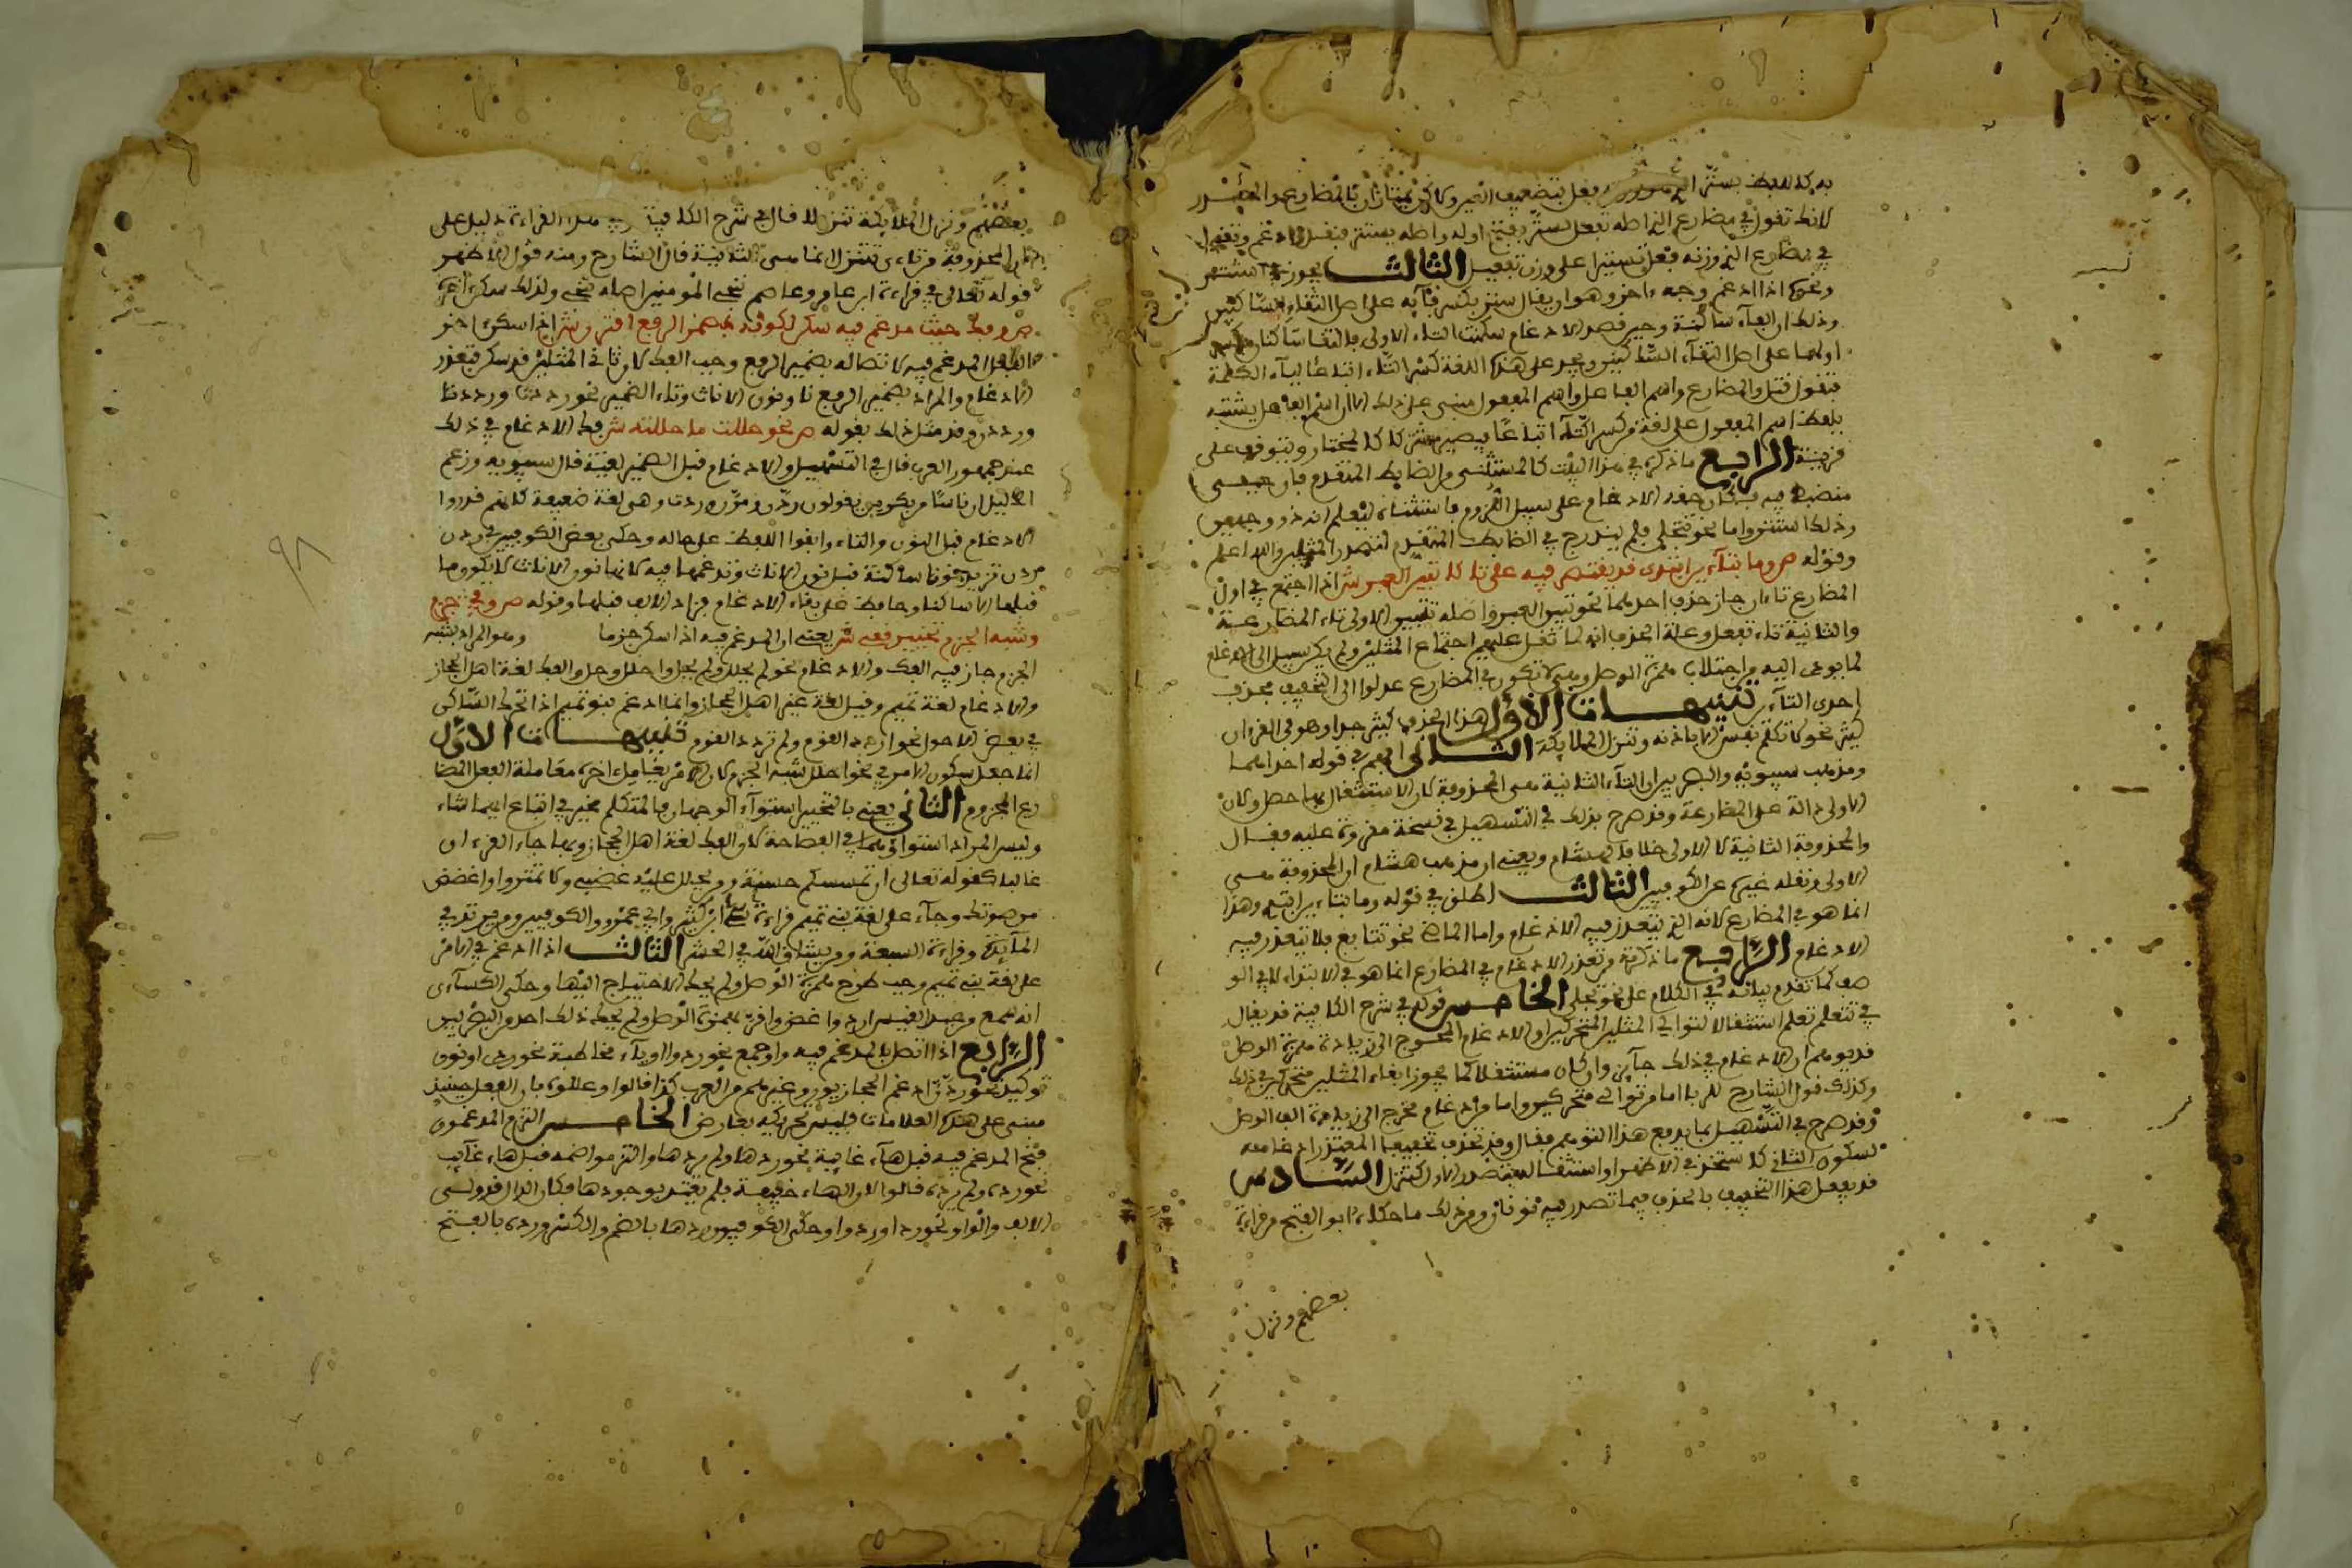 به كلفظ ستر الذي وزنه فعل بتضعيف العين ولاكن يمتازان بالمضارع والمصدر
لانك تقول في مضارع الذي اصله افتعل يستر بفتح اوله واصله يستتر فنقل وادغم وتقول
في مضارع الذي وزنه فعل يستر على وزن تفعيل الثالث يجوز في استتر
ونحوه اذا ادغم وجه ءاخر وهو ان يقال ستر بكسر فآيه على اصل التقاء الساكنين
وذلك ان الفاء ساكنة وحين قصد الادغام سكنت التاء الاولى فالتقا ساكنان فكسر
اولهما على اصل التقآء الساكنين ويجوز على هذه اللغة كسر التاء اتباعا لفآء الكلمة
فتقول فتل والمضارع واسم الفاعل واسم المفعول مبني على ذلك الا ان اسم الفاعل يشتبه
بلفظ اسم المفعول على لغة من كسر التاء اتباعا فيصير مشتركا كالمختار ويتوقف على
قرينة الرابع ما ذكره في هذا البيت كالمستثنى من الضابط المتقدم فان جميعي
منضبط فيه فكان حقه الادغام على سبيل اللزوم فاستثناه ليعلم انه ذو وجهين
وذلك استتر واما نحو تتجلى فلم يندرج في الضابط المتقدم لتصدر المثلين والله اعلم
وقوله ص وما بتآءين ابتدى قد يقتصر فيه على تا كتبين العبر ش اذا اجتمع في اول
المضارع تاءان جاز حذف احدهما نحو تبين العبر واصله تتبين الاولى تاء المضارعة
والثانية تاء تفعل وعلة الحذف انه لما ثقل عليهم اجتماع المثلين ولم يكن سبيل الى الادغام
لما يودى اليه من اجتلاب همزة الوصل وهي لا تكون في المضارع عدلوا الى التخفيف بحذف
احدى التآءين تنبيهات الاول هذا الحذف كثير جدا وهو في القرءان
كثير نحو لا تكلم نفس الا باذنه وتنزل الملايكة الثاني ابهم في قوله احداهما
ومذهب سيبويه والبصريين ان التآء الثانية هي المحذوفة لان الاستثقال بها حصل ولان
الاولى دالة على المضارعة وقد صرح بذلك في التسهيل في نسخة مقروءة عليه فقال
والمحذوفة الثانية لا الاولى خلافا لهشام ويعني ان مذهب هشام ان المحذوفة هي
الاولى ونقله غيره عن الكوفيين الثالث اطلق في قوله وما بتاءين ابتدى وهذا
انما هو في المضارع لانه الذي يتعذر فيه الادغام واما الماضي نحو تتابع فلا يتعذر فيه
الادغام الرابع ما ذكره من تعذر الادغام في المضارع انما هو في الابتداء لا في الو
صل كما تقدم بيانه في الكلام على نحو تتجلى الخامس قوله في شرح الكافية قد يقال
في تتعلم تعلم استثقالا لتوالي المثلين المتحركين والادغام المحوج الى زيادة همزة الوصل
قد يوهم ان الادغام في ذلك جآيز وان كان مستثقلا كما يجوز ابقاء المثلين متحركين في ذلك
وكذلك قول الشارح للربا اما من توالي متحركين واما من ادغام مخرج الى زيادة الف الوصل
وقد صرح في التسهيل بما يدفع هذا التوهم فقال وقد تحذف تخفيفا المتعذر ادغامه
لسكون الثاني كاستخذ في الاظهر او استثقاله بتصدر الاول كتنزل السادس
قد يفعل هذا التخفيف بالحذف فيما تصدر فيه نونان ومن ذلك ما حكاه ابو الفتح من قراءة
بعضهم ونزل
بعضهم ونزل الملايكة تنزيلا قال في شرح الكافية وفي هذه القراءة دليل على
ان المحذوفة من تاءي تتنزل انما هي الثانية قال الشارح ومنه في الاظهر
قوله تعالى في قراءة ابن عامر وعاصم نجي المؤمنين اصله ننجي ولذلك سكن اخره
ص وفك حيث مدغم فيه سكن لكونه بمضمر الرفع اقترن ش اذا سكن اخر
الفعل المدغم فيه لاتصاله بضمير الرفع وجب الفك لان ثاني المثلين قد سكن فتعذر
الادغام والمراد بضمير الرفع نا ونون الاناث وتاء الضمير نحو رددت ورددنا
ورددن وقد مثل ذلك بقوله ص نحو حللت ما حللته ش وفك الادغام في ذلك
عند جمهور العرب قال في التسهيل والادغام قبل الضمير لغية قال سيبويه وزعم
الخليل ان ناسا من بكر بن يقولون ردن ومرن وردت وهي لغة ضعيفة كانهم قدروا
الادغام قبل النون والتاء وابقوا اللفظ على حاله وحكى بعض الكوفيين في ردن
ردن تزيد نونا ساكنة قبل نون الاناث وتدغمها فيه لانها نون الاناث لا يكون ما
قبلها الا ساكنا وحافظ على بقاء الادغام فزاد الالف قبلها وقوله ص وفي جزم
وشبه الجزم تخيير قفي ش يعني ان المدغم فيه اذا سكن جزما وهو المراد بشبه
الجزم جاز فيه الفك والادغام نحو لم يحلل ولم يحل واحلل وحل والفك لغة اهل الحجاز
والادغام لغة تميم وقيل لغة غير اهل الحجاز وانما ادغم بنو تميم اذا تحرك الساكن
في بعض الاحوال نحو اردد القوم ولم تردد القوم تنبيهات الاول
انما جعل سكون الامر في نحو احلل شبه الجزم لان الامر يعامل اخره معاملة الفعل المضا
رع المجزوم الثاني يعني بالتخيير استوآء الوجهين فالمتكلم مخير في اتباع ايهما شاء
وليس المراد استواؤهما في الفصاحة لان الفك لغة اهل الحجاز وبها جاء القرءان
غالبا كقوله تعالى ان تمسسكم حسنة ومن يحلل عليه غضبي ولا تمنن واغضض
من صوتك وجآء على لغة بني تميم قراءة ابن كثير وابي عمرو والكوفيين ومن يرتد في
المآيدة وقراءة السبعة ومن يشاق الله في الحشر الثالث اذا ادغم في الامر
على لغة بني تميم وجب طرح همزة الوصل ولم يحك الاحتياج اليها وحكى الكسآءي
انه سمع من عبد القيس اردد واغض وافر بهمزة الوصل ولم يحك ذلك احد من البصريين
الرابع اذا اتصل بالمدغم فيه واو جمع نحو ردوا او ياء مخاطبة نحو ردي او نون
توكيد نحو ردن ادغم الحجازيون وغيرهم من العرب كذا قالوا وعللوه بان الفعل حينيذ
مبني على هذه العلامات فليس تحريكه بعارض الخامس التزم المدغمون
فتح المدغم فيه قبل هآء غايبة نحو ردها ولم يردها والتزموا ضمه قبل هاء غآيب
نحو رده ولم يرده قالوا لان الهاء خفيفة فلم يعتد بوجودها فكان الدال قد وليس
الالف والواو نحو ردا وردوا وحكى الكوفيون ردها بالضم والكسر ورده بالفتح